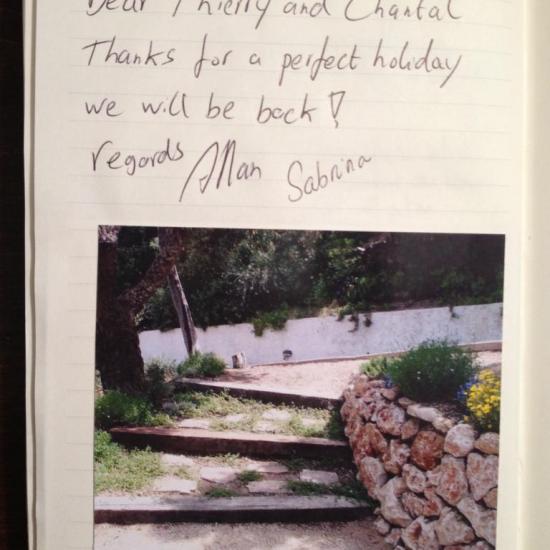 Dear Thierry and Chantal
Thanks for a perfect holiday
we will be back!
regards Allan Sabrina